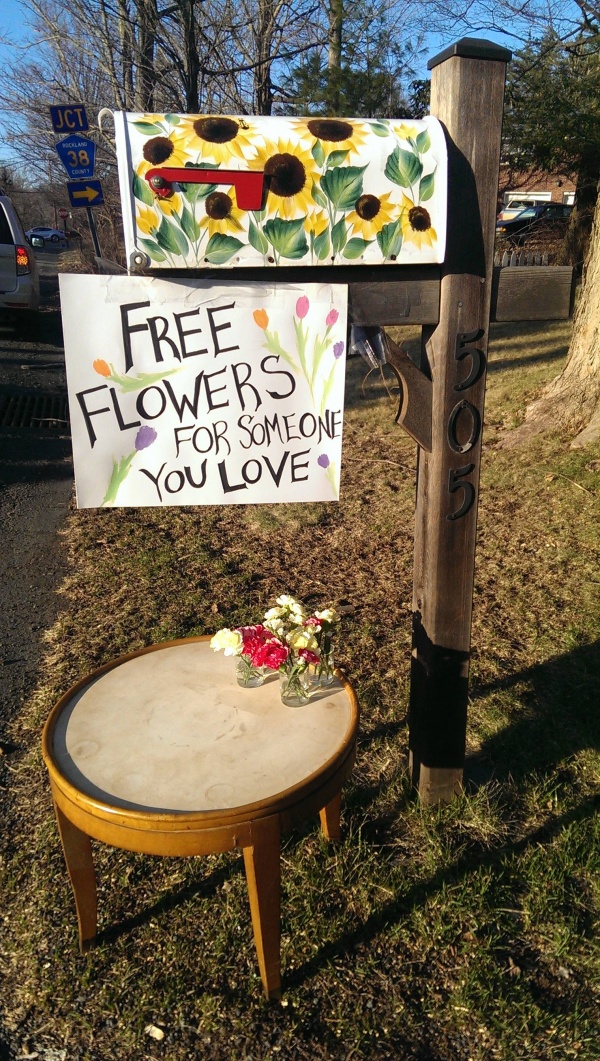 JCT
ROCKLAND
38
COUNTY
FREE
FLOWERS
FOR SOMEONE
YOU LOVE
505